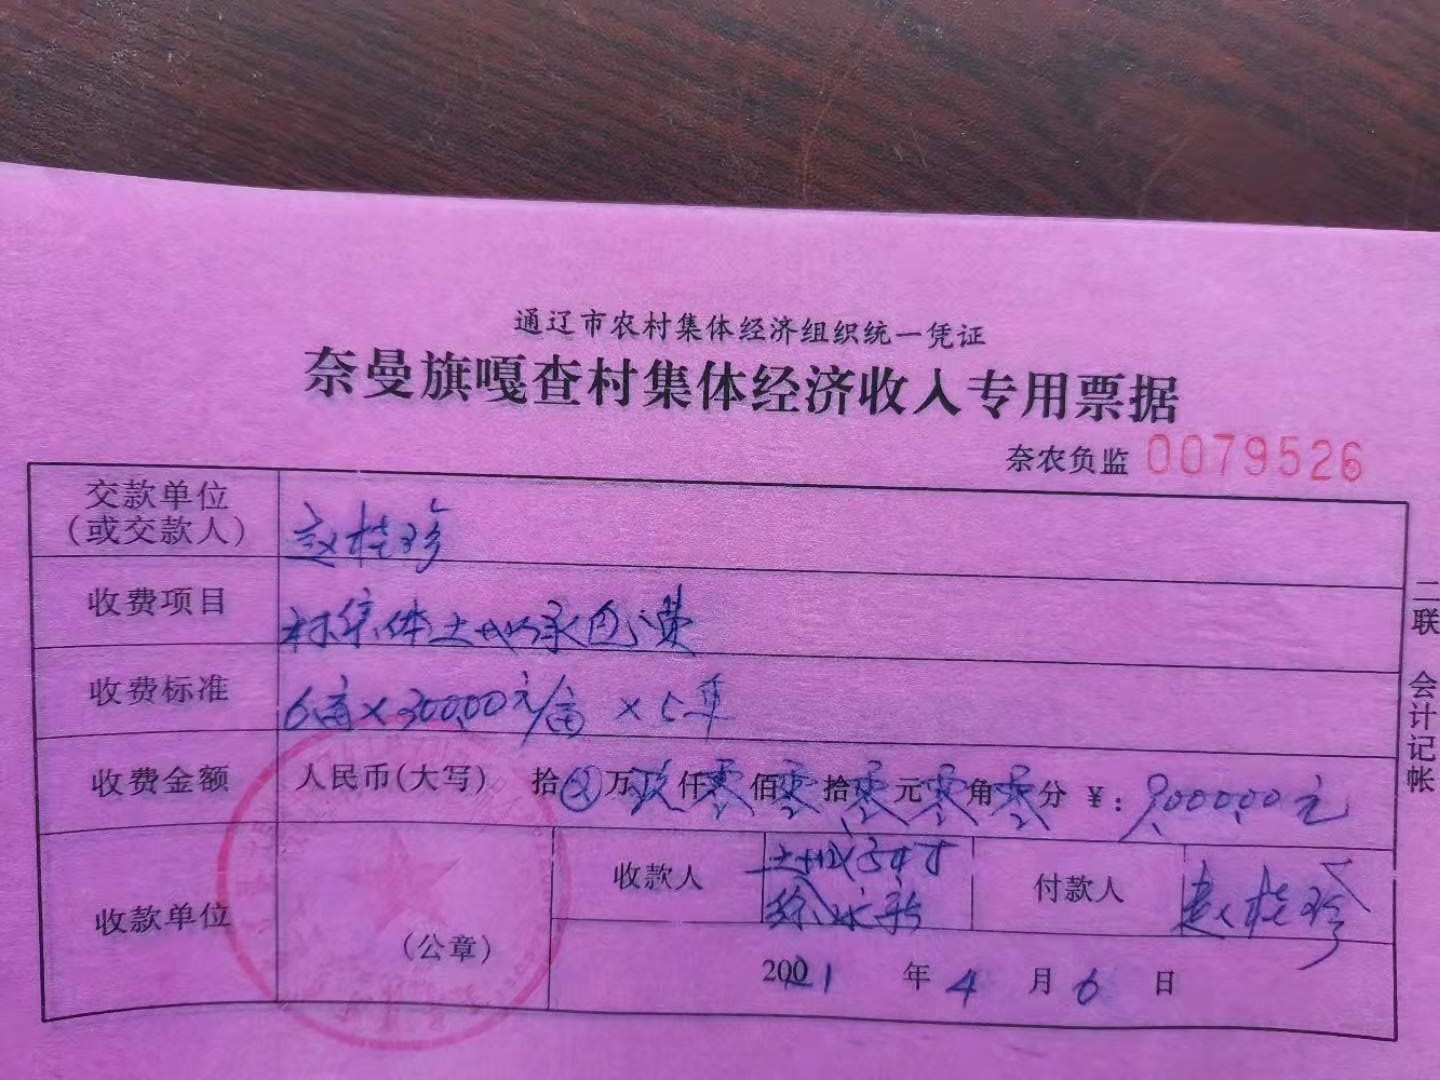 通辽市农村集体经济组织统一凭证
奈曼旗嘎查村集体经济收入专用票据
奈农负监 0079526
交款单位
(或交款人) 赵桂珍
收费项目 村集体土地承包费
收费标准 6亩×300.00元/亩×5年
收费金额 人民币(大写) 拾⊗万玖仟零佰零拾零元零角零分 ¥:9,000.00元
收款单位 (公章) 收款人 付款人 赵桂珍
2021年4月6日
二联 会计记帐